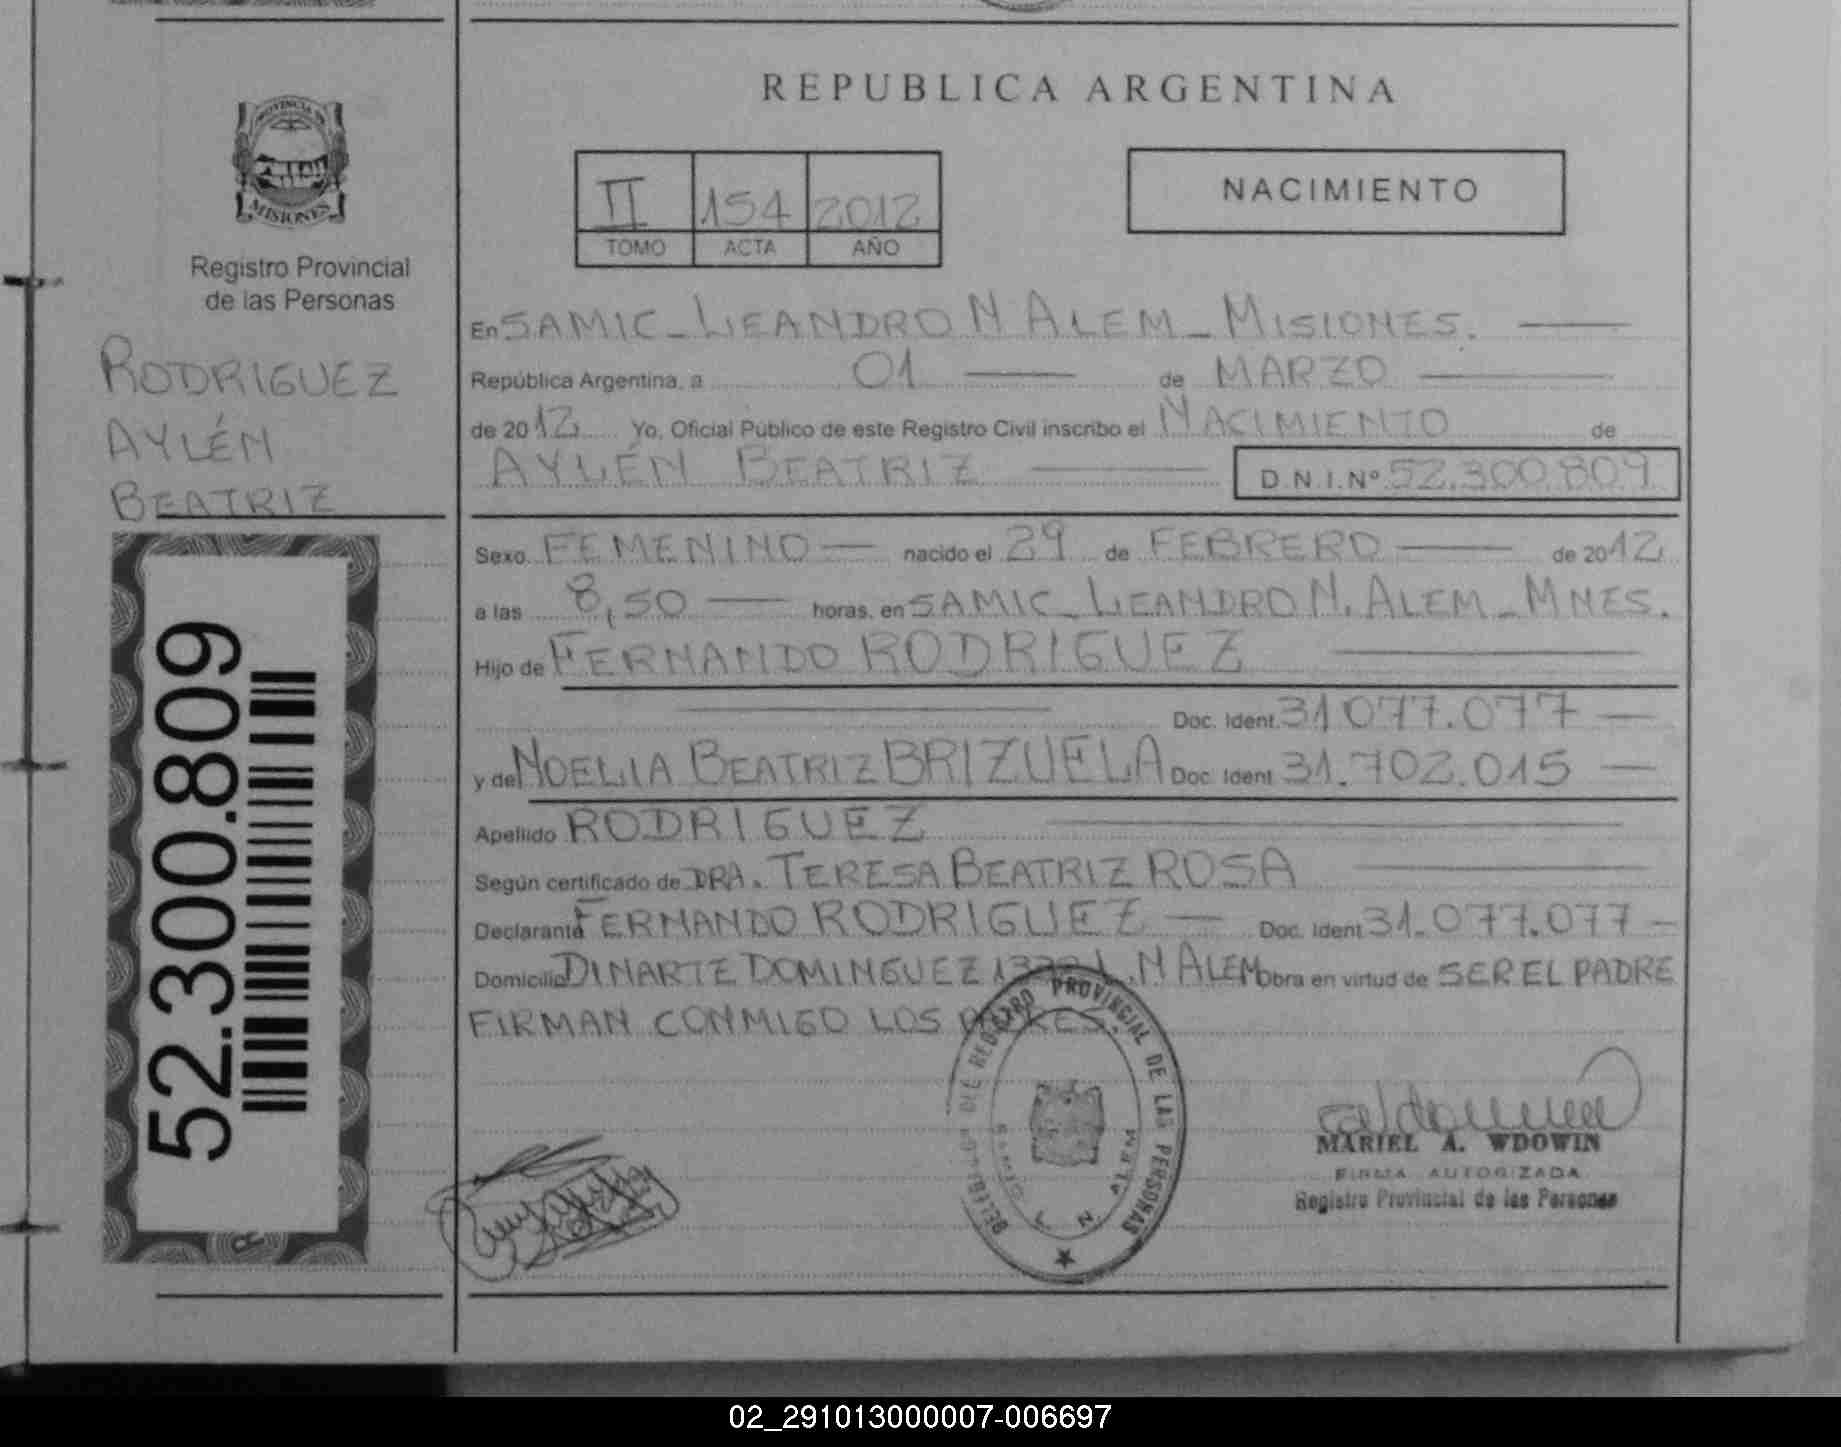 REPUBLICA ARGENTINA
PROVINCIA DE
MISIONES
Registro Provincial
de las Personas
RODRIGUEZ
AYLÉN
BEATRIZ
52.300.809
II 154 2012
TOMO ACTA AÑO
NACIMIENTO
En SAMIC_LEANDRO N ALEM_MISIONES.
República Argentina, a 01 de MARZO
de 2012 Yo, Oficial Público de este Registro Civil inscribo el NACIMIENTO de
AYLÉN BEATRIZ D.N.I.Nº 52.300.809
Sexo FEMENINO nacido el 29 de FEBRERO de 2012
a las 8,50 horas, en SAMIC_LEANDRO N. ALEM_MNES.
Hijo de FERNANDO RODRIGUEZ
Doc. Ident. 31077.077
y de NOELIA BEATRIZ BRIZUELA Doc. Ident. 31.702.015
Apellido RODRIGUEZ
Según certificado de DRA. TERESA BEATRIZ ROSA
Declarante FERNANDO RODRIGUEZ Doc. Ident. 31.077.077
Domicilio DINARTE DOMINGUEZ L.N ALEM Obra en virtud de SER EL PADRE
FIRMAN CONMIGO LOS PADRES.
REGISTRO PROVINCIAL DE LAS PERSONAS
SAMIC L N ALEM
MARIEL A. WDOWIN
FIRMA AUTORIZADA
Registro Provincial de las Personas
02_291013000007-006697